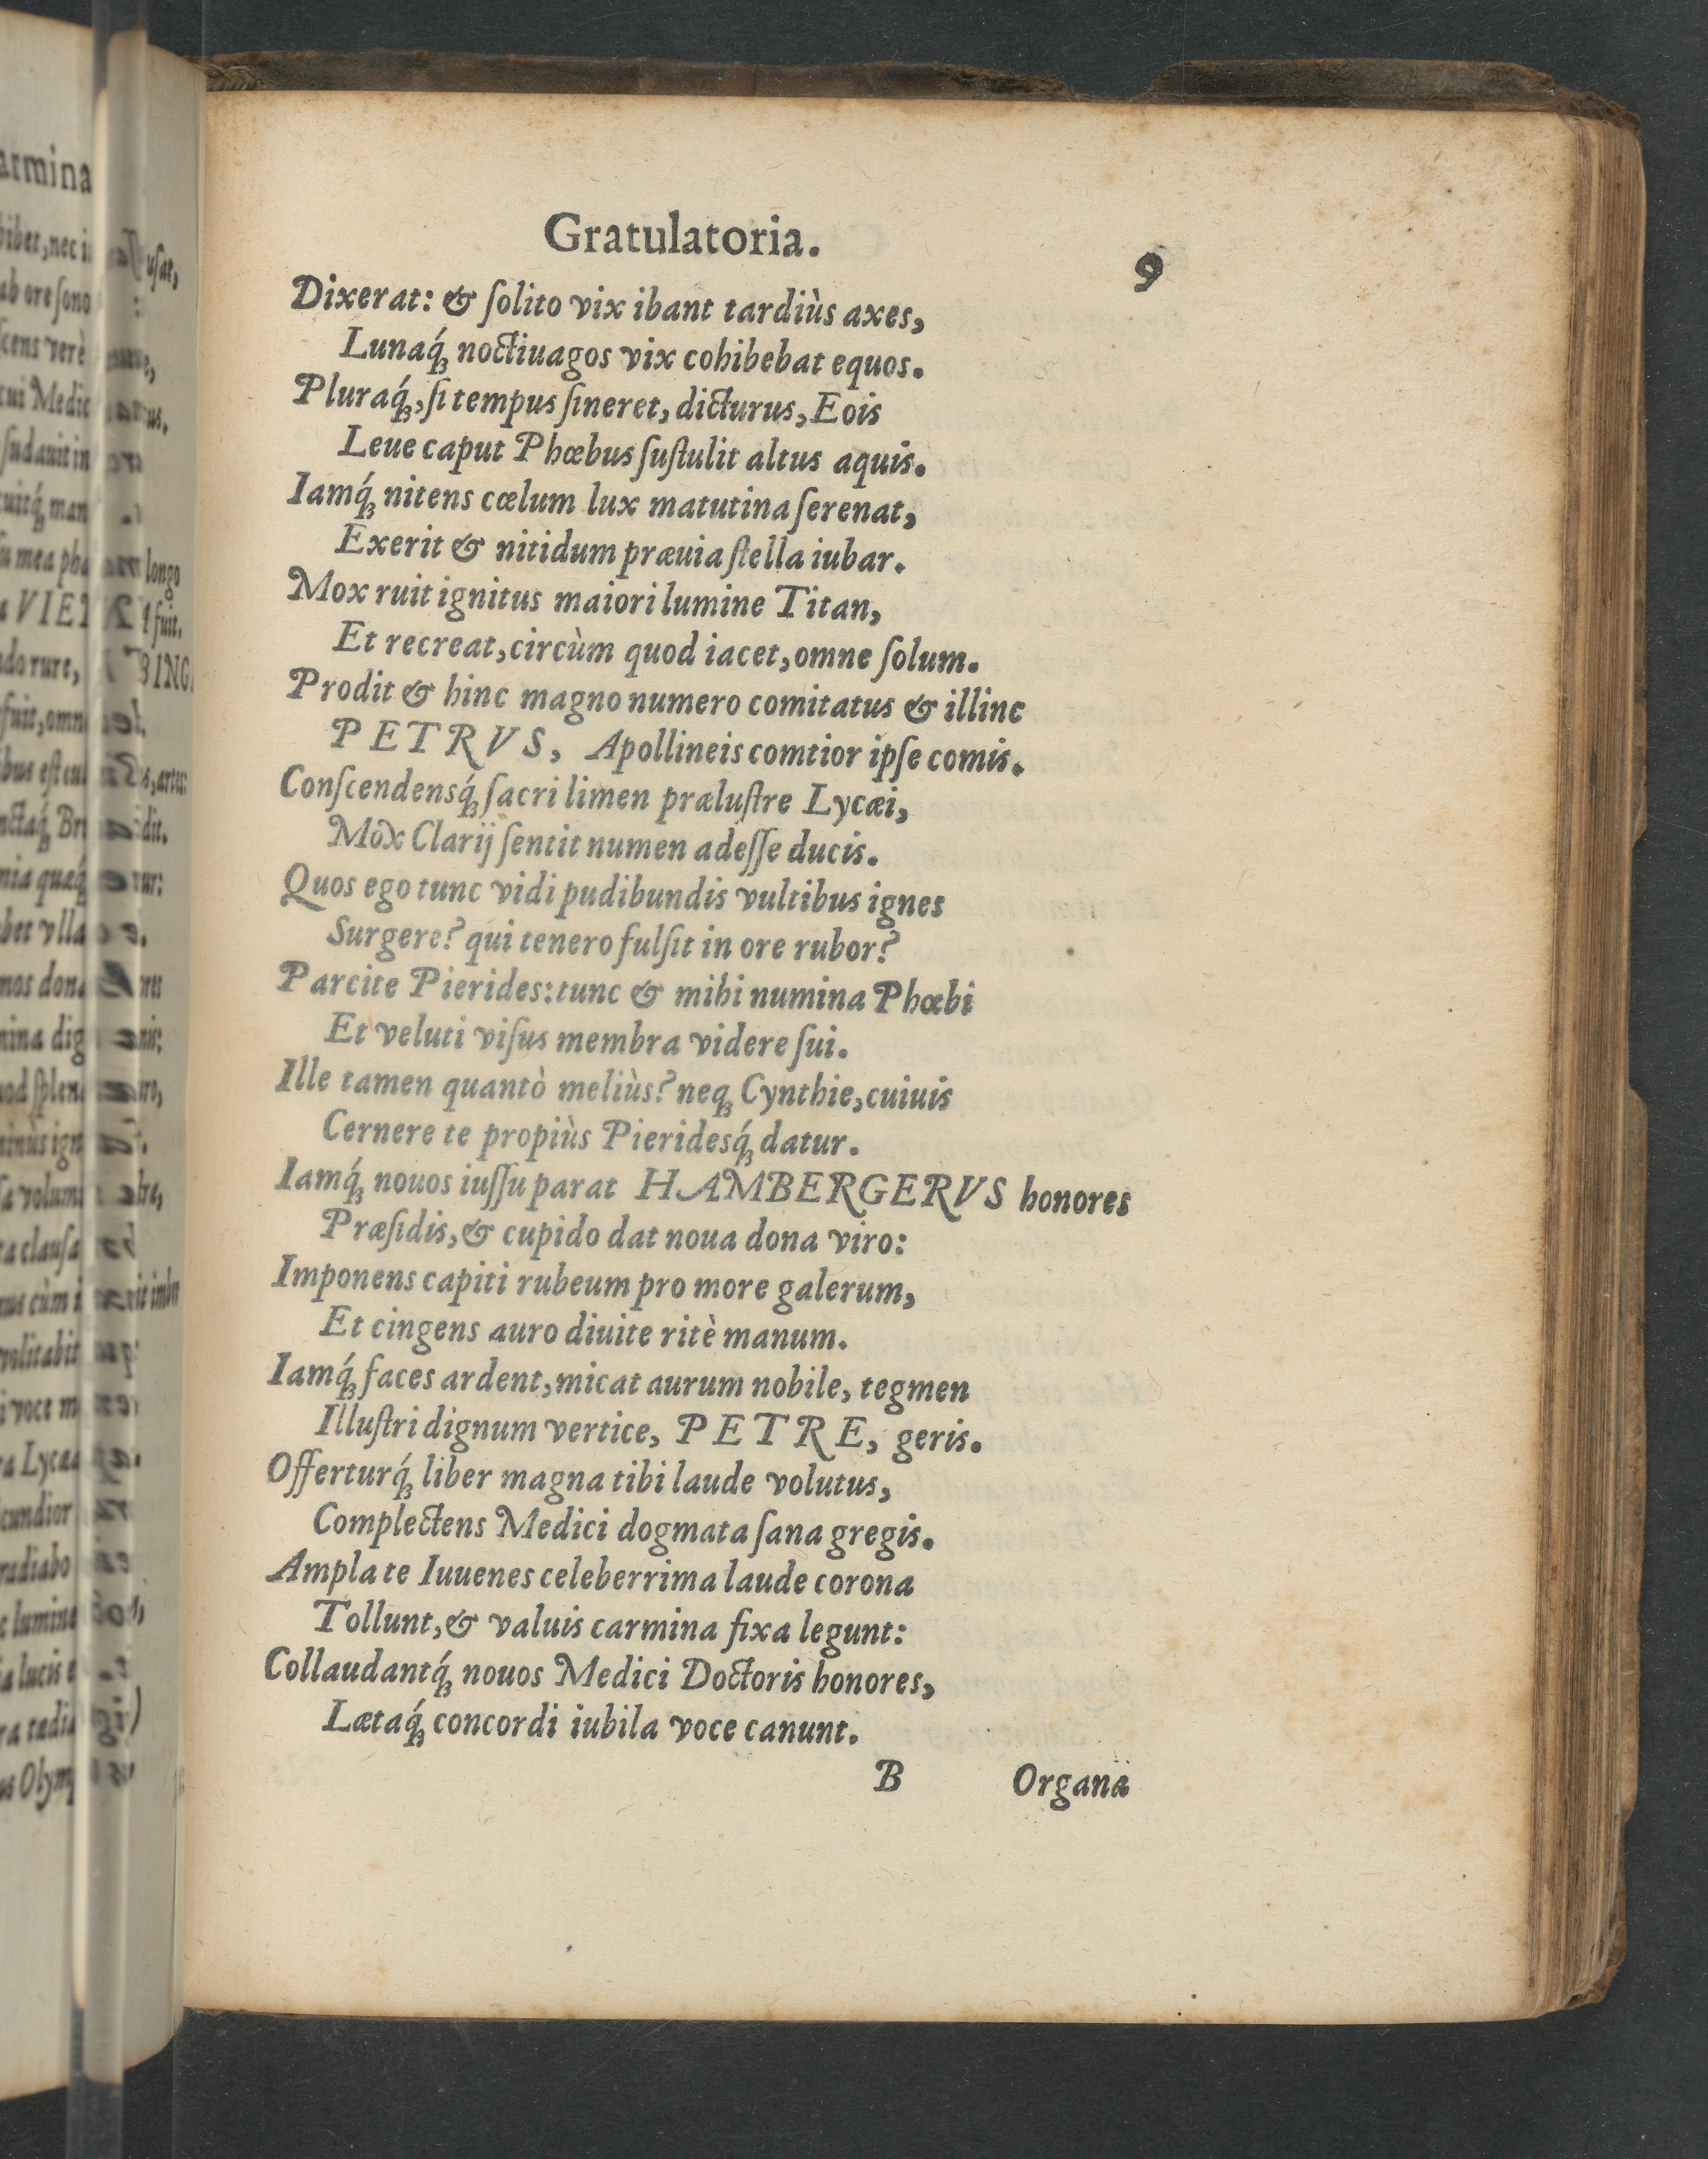 Gratulatoria. 9
Dixerat: & ſolito vix ibant tardiùs axes,
Lunaq́ꝫ noctiuagos vix cohibebat equos.
Pluraq́ꝫ, ſi tempus ſineret, dicturus, Eois
Leue caput Phœbus ſuſtulit altus aquis.
Iamq́ꝫ nitens cœlum lux matutina ſerenat,
Exerit & nitidum præuia ſtella iubar.
Mox ruit ignitus maiori lumine Titan,
Et recreat, circùm quod iacet, omne ſolum.
Prodit & hinc magno numero comitatus & illinc
PETRVS, Apollineis comtior ipſe comis.
Conſcendensq́ꝫ ſacri limen præluſtre Lycæi,
Mox Clarij ſentit numen adeſſe ducis.
Quos ego tunc vidi pudibundis vultibus ignes
Surgere? qui tenero fulſit in ore rubor?
Parcite Pierides: tunc & mihi numina Phœbi
Et veluti viſus membra videre ſui.
Ille tamen quantò meliùs? neqꝫ Cynthie, cuiuis
Cernere te propiùs Pieridesq́ꝫ datur.
Iamq́ꝫ nouos iuſſu parat HAMBERGERVS honores
Præſidis, & cupido dat noua dona viro:
Imponens capiti rubeum pro more galerum,
Et cingens auro diuite ritè manum.
Iamq́ꝫ faces ardent, micat aurum nobile, tegmen
Illuſtri dignum vertice, PETRE, geris.
Offerturq́ꝫ liber magna tibi laude volutus,
Complectens Medici dogmata ſana gregis.
Ampla te Iuuenes celeberrima laude corona
Tollunt, & valuis carmina fixa legunt:
Collaudantq́ꝫ nouos Medici Doctoris honores,
Lætaq́ꝫ concordi iubila voce canunt.
B Organa